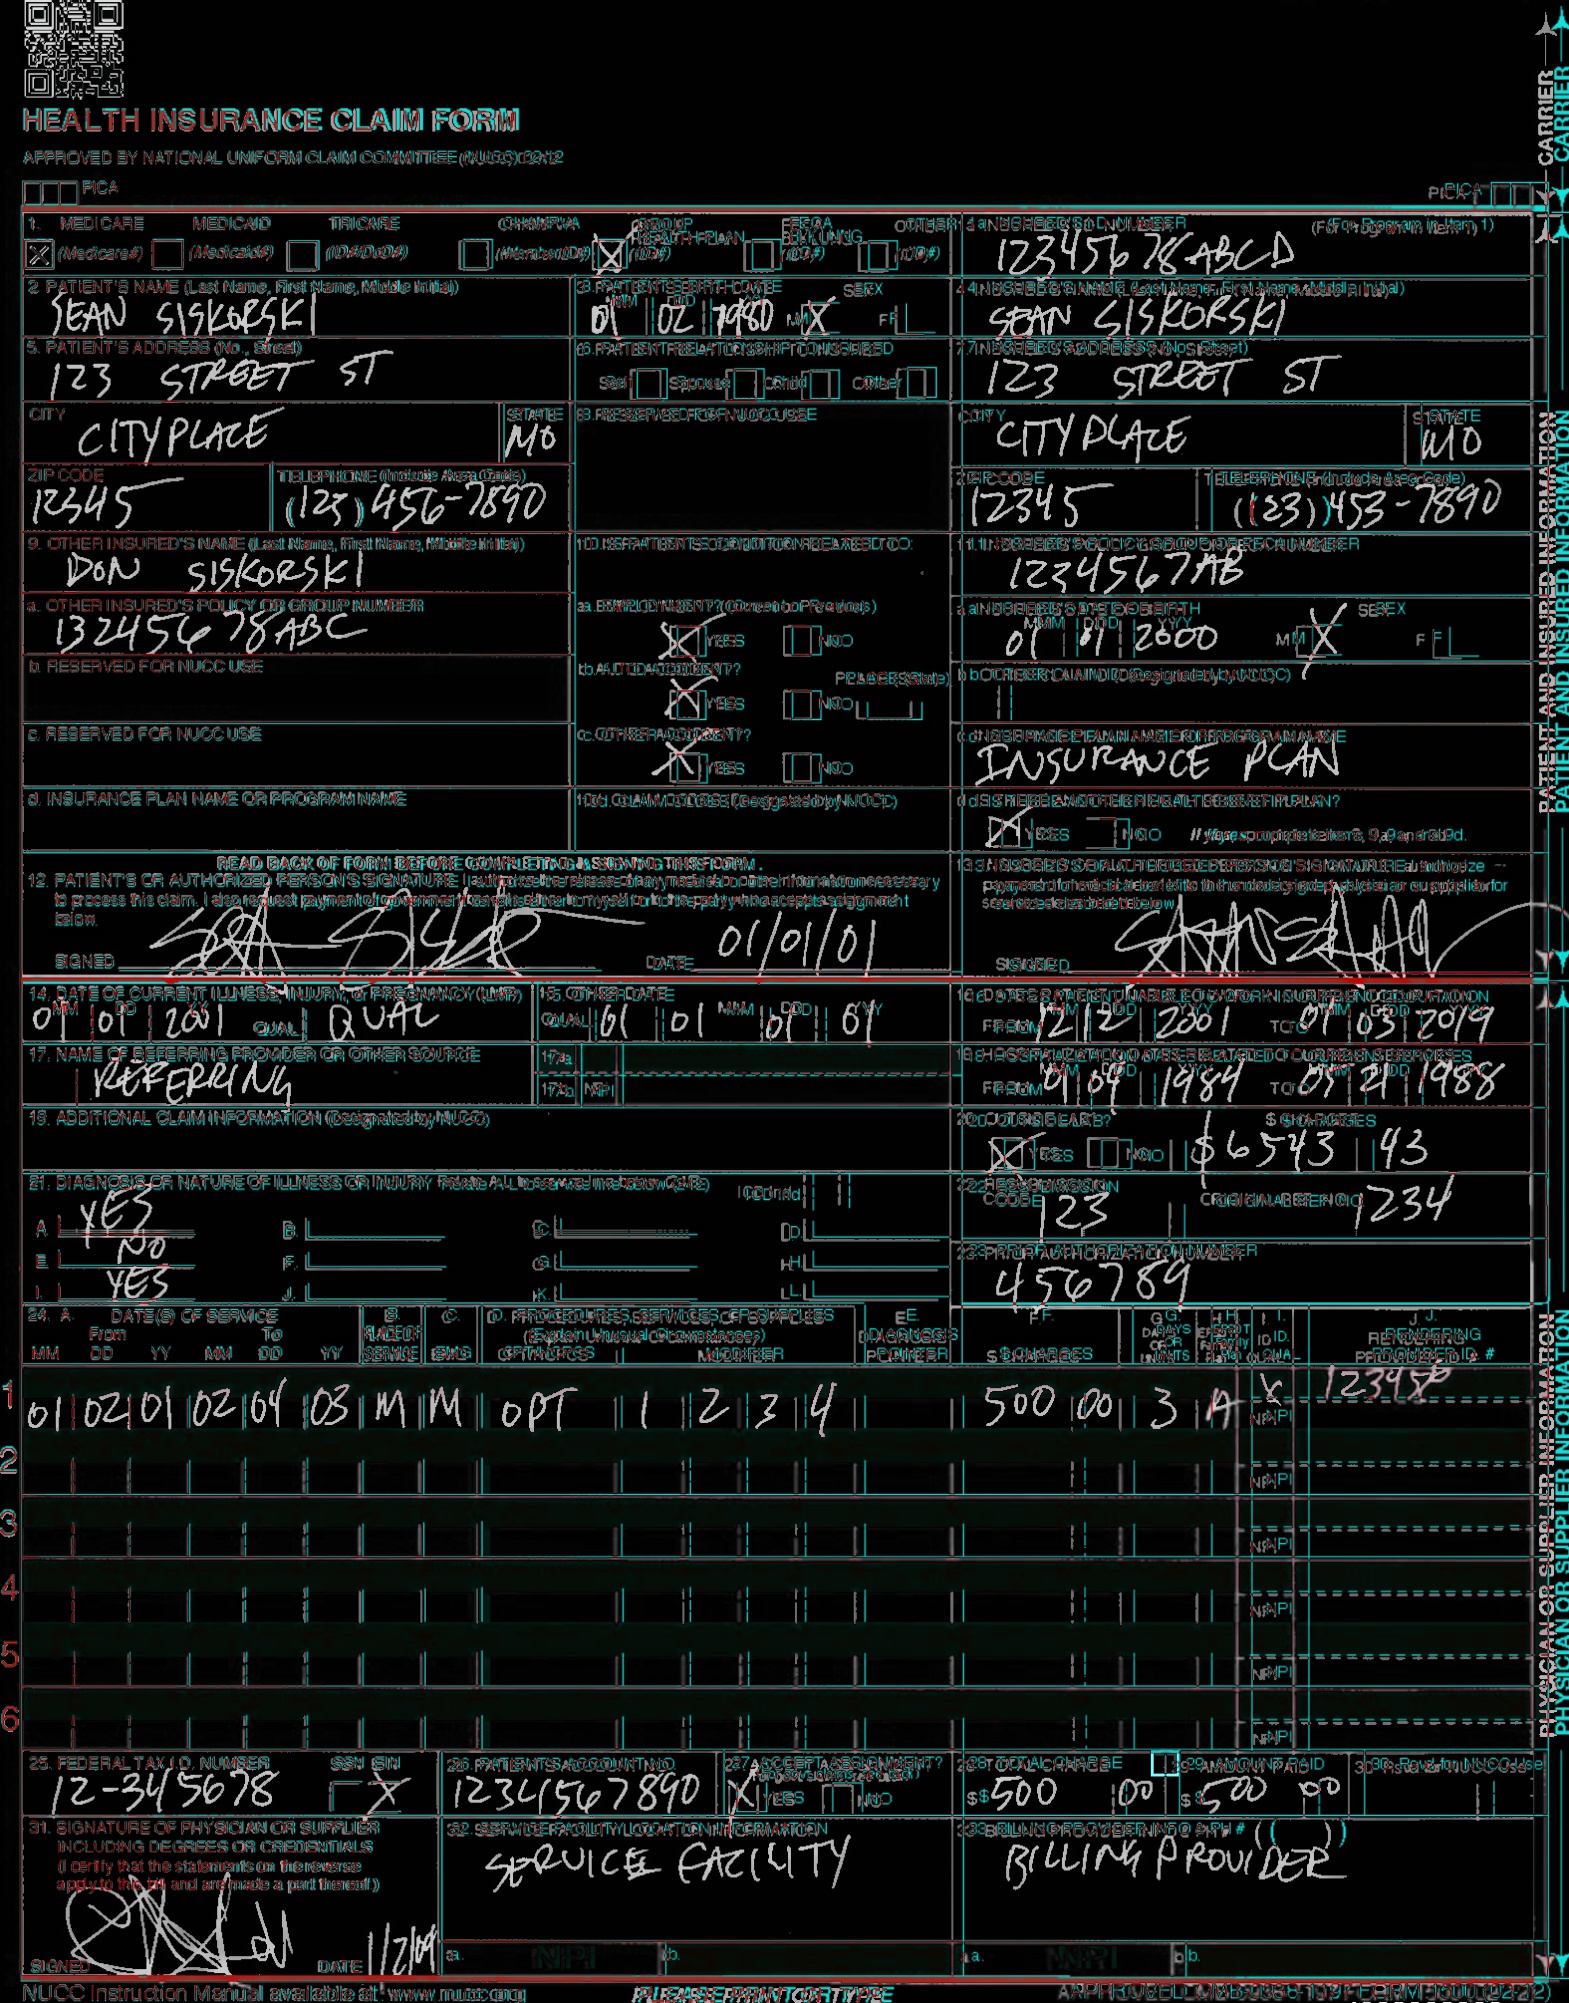 HEALTH INSURANCE CLAIM FORM
APPROVED BY NATIONAL UNIFORM CLAIM COMMITTEE (NUCC) 02/12
PICA
PICA
CARRIER
1. MEDICARE MEDICAID TRICARE CHAMPVA GROUP HEALTH PLAN FECA BLK LUNG OTHER
(Medicare#) (Medicaid#) (ID#/DoD#) (Member ID#) (ID#) (ID#) (ID#)
1a. INSURED'S I.D. NUMBER (For Program in Item 1)
12345678ABCD
2. PATIENT'S NAME (Last Name, First Name, Middle Initial)
SEAN SISKORSKI
3. PATIENT'S BIRTH DATE SEX
MM DD YY
01 02 1980 M X F
4. INSURED'S NAME (Last Name, First Name, Middle Initial)
SEAN SISKORSKI
5. PATIENT'S ADDRESS (No., Street)
123 STREET ST
6. PATIENT RELATIONSHIP TO INSURED
Self Spouse Child Other
7. INSURED'S ADDRESS (No., Street)
123 STREET ST
CITY STATE
CITYPLACE MO
8. RESERVED FOR NUCC USE
CITY STATE
CITYPLACE MO
ZIP CODE TELEPHONE (Include Area Code)
12345 (123) 456-7890
ZIP CODE TELEPHONE (Include Area Code)
12345 (123) 453-7890
9. OTHER INSURED'S NAME (Last Name, First Name, Middle Initial)
DON SISKORSKI
10. IS PATIENT'S CONDITION RELATED TO:
11. INSURED'S POLICY GROUP OR FECA NUMBER
1234567AB
a. OTHER INSURED'S POLICY OR GROUP NUMBER
13245678ABC
a. EMPLOYMENT? (Current or Previous)
X YES NO
a. INSURED'S DATE OF BIRTH SEX
MM DD YY
01 01 2000 M X F
b. RESERVED FOR NUCC USE
b. AUTO ACCIDENT? PLACE (State)
X YES NO
b. OTHER CLAIM ID (Designated by NUCC)
c. RESERVED FOR NUCC USE
c. OTHER ACCIDENT?
X YES NO
c. INSURANCE PLAN NAME OR PROGRAM NAME
INSURANCE PLAN
d. INSURANCE PLAN NAME OR PROGRAM NAME
10d. CLAIM CODES (Designated by NUCC)
d. IS THERE ANOTHER HEALTH BENEFIT PLAN?
X YES NO If yes, complete items 9, 9a and 9d.
READ BACK OF FORM BEFORE COMPLETING & SIGNING THIS FORM.
12. PATIENT'S OR AUTHORIZED PERSON'S SIGNATURE I authorize the release of any medical or other information necessary
to process this claim. I also request payment of government benefits either to myself or to the party who accepts assignment
below.
SIGNED DATE 01/01/01
13. INSURED'S OR AUTHORIZED PERSON'S SIGNATURE I authorize
payment of medical benefits to the undersigned physician or supplier for
services described below.
SIGNED
PATIENT AND INSURED INFORMATION
14. DATE OF CURRENT ILLNESS, INJURY, or PREGNANCY (LMP)
MM DD YY
01 01 2001 QUAL. QUAL
15. OTHER DATE
MM DD YY
QUAL. 01 01 01 01
16. DATES PATIENT UNABLE TO WORK IN CURRENT OCCUPATION
MM DD YY MM DD YY
FROM 12 12 2001 TO 01 03 2019
17. NAME OF REFERRING PROVIDER OR OTHER SOURCE
REFERRING
17a.
17b. NPI
18. HOSPITALIZATION DATES RELATED TO CURRENT SERVICES
MM DD YY MM DD YY
FROM 01 04 1984 TO 05 21 1988
19. ADDITIONAL CLAIM INFORMATION (Designated by NUCC)
20. OUTSIDE LAB? $ CHARGES
X YES NO $6543 43
21. DIAGNOSIS OR NATURE OF ILLNESS OR INJURY Relate A-L to service line below (24E) ICD Ind.
A. YES B. C. D.
E. NO F. G. H.
I. YES J. K. L.
22. RESUBMISSION CODE ORIGINAL REF. NO.
123 1234
23. PRIOR AUTHORIZATION NUMBER
456789
24. A. DATE(S) OF SERVICE B. C. D. PROCEDURES, SERVICES, OR SUPPLIES E. F. G. H. I. J.
From To PLACE OF (Explain Unusual Circumstances) DIAGNOSIS DAYS OR EPSDT ID. RENDERING
MM DD YY MM DD YY SERVICE EMG CPT/HCPCS MODIFIER POINTER $ CHARGES UNITS Family Plan QUAL. PROVIDER ID. #
1 01 02 01 02 04 03 M M OPT 1 2 3 4 500 00 3 A X NPI
2 NPI
3 NPI
4 NPI
5 NPI
6 NPI
25. FEDERAL TAX I.D. NUMBER SSN EIN
12-345678 X
26. PATIENT'S ACCOUNT NO.
1234567890
27. ACCEPT ASSIGNMENT?
X YES NO
28. TOTAL CHARGE
$ 500 00
29. AMOUNT PAID
$ 500 00
30. Rsvd for NUCC Use
31. SIGNATURE OF PHYSICIAN OR SUPPLIER
INCLUDING DEGREES OR CREDENTIALS
(I certify that the statements on the reverse
apply to this bill and are made a part thereof.)
SIGNED DATE 1/2/09
32. SERVICE FACILITY LOCATION INFORMATION
SERVICE FACILITY
a. NPI b.
33. BILLING PROVIDER INFO & PH # ( )
BILLING PROVIDER
a. NPI b.
PHYSICIAN OR SUPPLIER INFORMATION
NUCC Instruction Manual available at: www.nucc.org
PLEASE PRINT OR TYPE
APPROVED OMB-0938-1197 FORM 1500 (02-12)